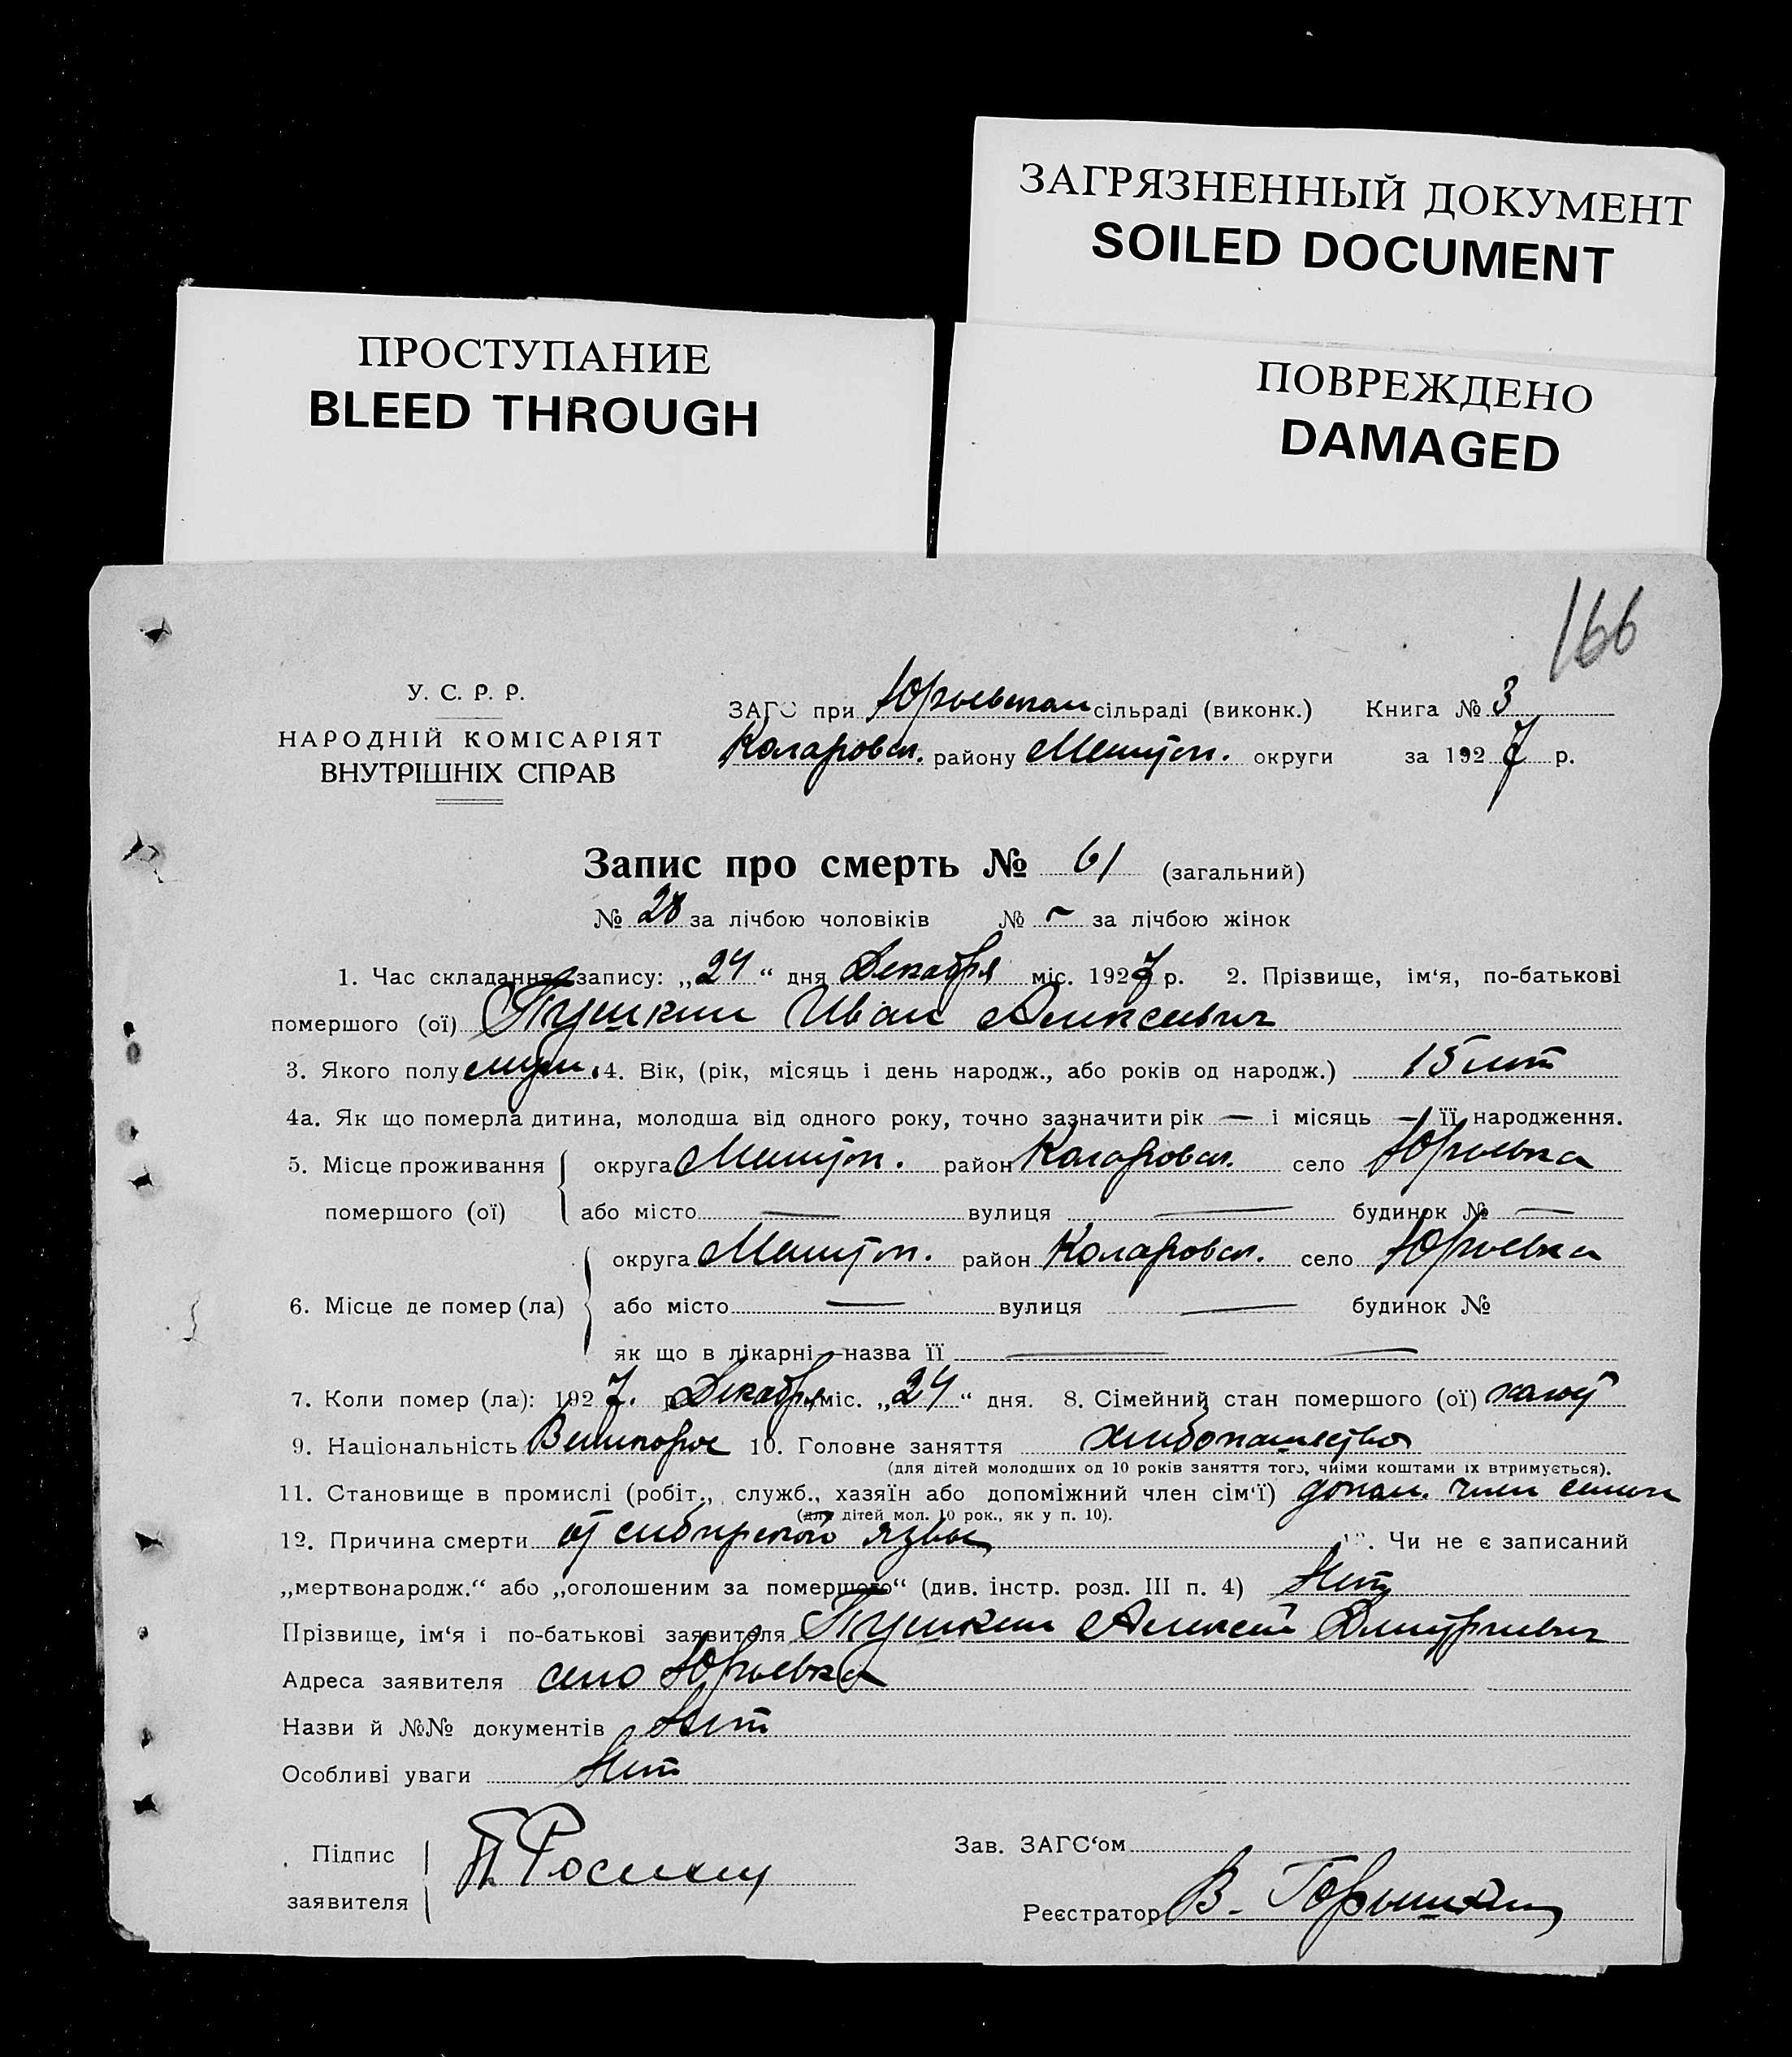 ЗАГРЯЗНЕННЫЙ ДОКУМЕНТ
SOILED DOCUMENT
ПРОСТУПАНИЕ
BLEED THROUGH
ПОВРЕЖДЕНО
DAMAGED
166
У. С. Р. Р.
НАРОДНІЙ КОМІСАРІЯТ
ВНУТРІШНІХ СПРАВ
ЗАГС при Юрьевском сільраді (виконк.) Книга № 3
Коларовск. району Мелитоп. округи за 1927 р.
Запис про смерть № 61 (загальний)
№ 28 за лічбою чоловіків № — за лічбою жінок
1. Час складання запису: „24“ дня Декабря міс. 1927 р. 2. Прізвище, ім‘я, по-батькові
помершого (ої) Пушкин Иван Алексеевич
3. Якого полу муж. 4. Вік, (рік, місяць і день народж., або років од народж.) 15 лет
4а. Як що померла дитина, молодша від одного року, точно зазначити рік — і місяць — її народження.
5. Місце проживання помершого (ої) округа Мелитоп. район Коларовск. село Юрьевка
або місто — вулиця — будинок № —
6. Місце де помер (ла) округа Мелитоп. район Коларовск. село Юрьевка
або місто — вулиця — будинок №
як що в лікарні—назва її — —
7. Коли помер (ла): 1927. р. Декабря міс. „24“ дня. 8. Сімейний стан помершого (ої) холост
9. Національність Великорос 10. Головне заняття хлебопашество
(для дітей молодших од 10 років заняття того, чиїми коштами їх втримується).
11. Становище в промислі (робіт., служб., хазяїн або допоміжний член сім‘ї) допом. член семьи
(для дітей мол. 10 рок., як у п. 10).
12. Причина смерти от сибирской язвы 13. Чи не є записаний
„мертвонародж.“ або „оголошеним за помершого“ (див. інстр. розд. III п. 4) Нет
Прізвище, ім‘я і по-батькові заявителя Пушкин Алексей Дмитриевич
Адреса заявителя село Юрьевка
Назви й №№ документів Нет
Особливі уваги Нет
Підпис
заявителя
Зав. ЗАГС‘ом
Реєстратор В.